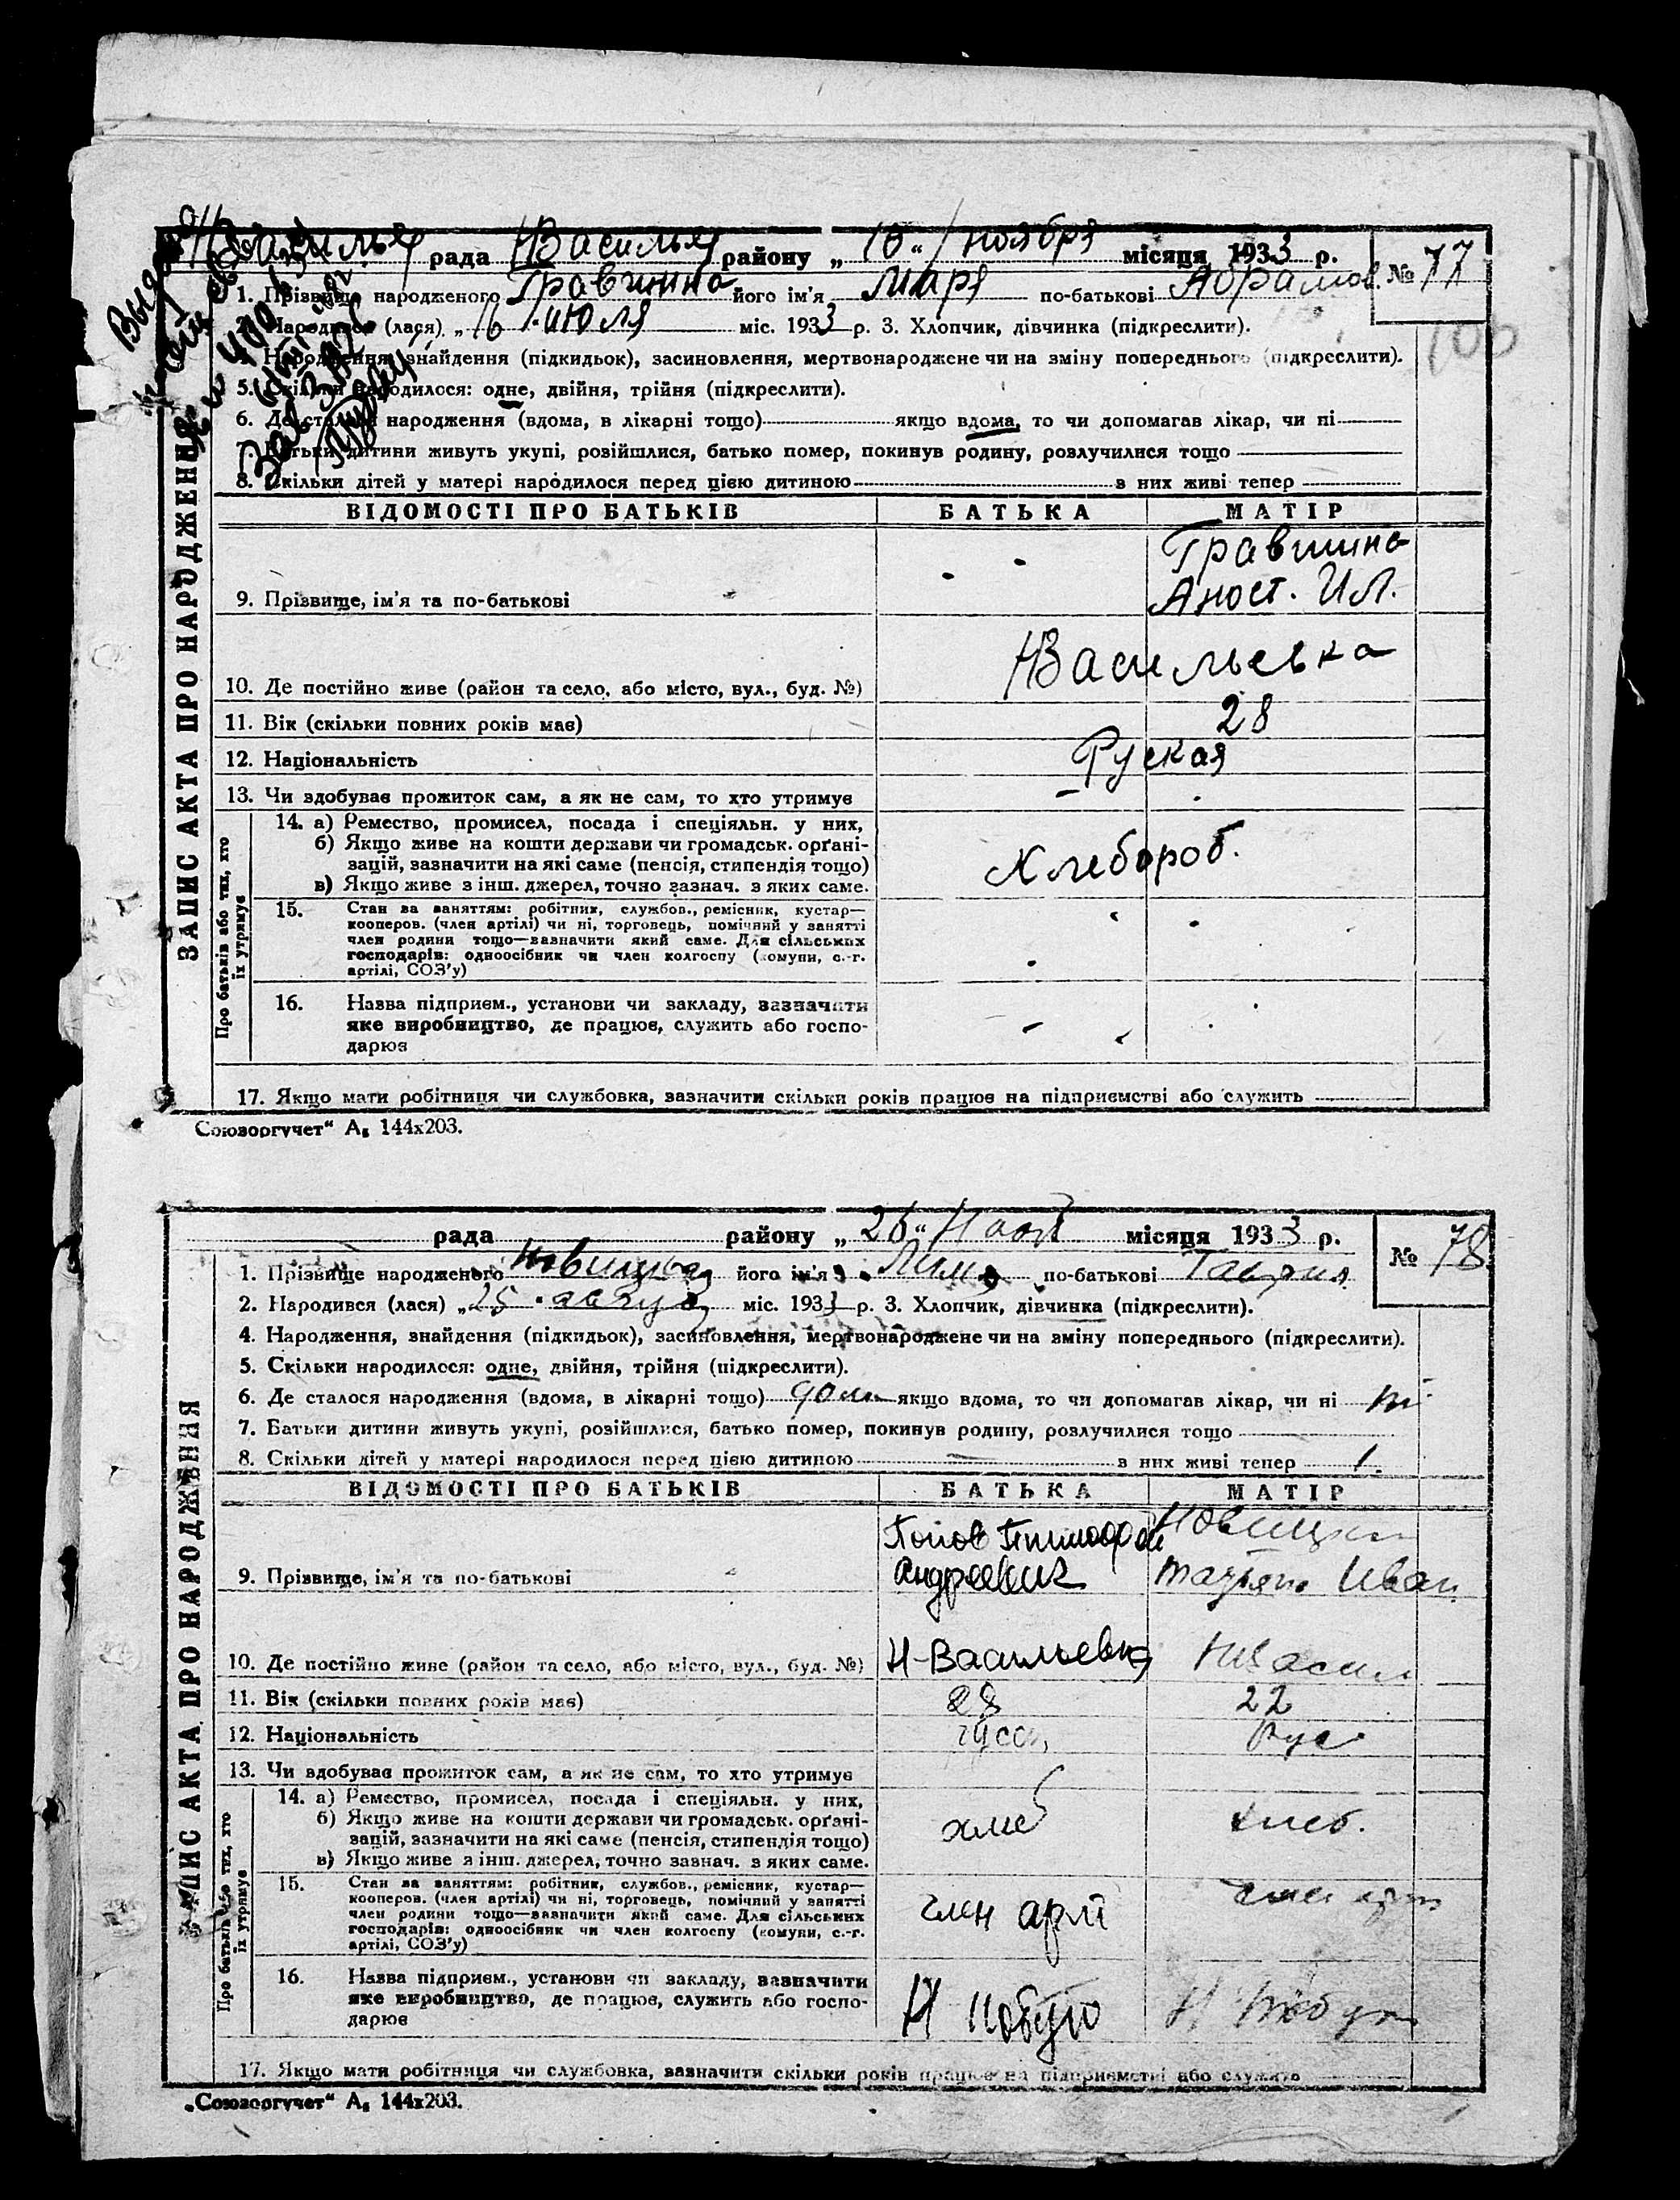 Н Василья рада НВасилья району „ 10 “ ноября місяця 1933 р.
№ 77
1. Прізвище народженого Травинина його ім'я Мария по-батькові Абрамов.
2. Народився (лася) „ 16 “ июля міс. 1933 р. 3. Хлопчик, дівчинка (підкреслити).
4. Народження, знайдення (підкидьок), засиновлення, мертвонароджене чи на зміну попереднього (підкреслити).
5. Скільки народилося: одне, двійня, трійня (підкреслити).
6. Де сталося народження (вдома, в лікарні тощо) якщо вдома, то чи допомагав лікар, чи ні
7. Батьки дитини живуть укупі, розійшлися, батько помер, покинув родину, розлучилися тощо
8. Скільки дітей у матері народилося перед цією дитиною з них живі тепер
ЗАПИС АКТА ПРО НАРОДЖЕННЯ
ВІДОМОСТІ ПРО БАТЬКІВ БАТЬКА МАТІР
Травинина
9. Прізвище, ім'я та по-батькові Аност. Ил.
10. Де постійно живе (район та село, або місто, вул., буд. №) НВасильевка
11. Вік (скільки повних років має) 28
12. Національність Руская
13. Чи здобуває прожиток сам, а як не сам, то хто утримує
Про батьків або тих, хто їх утримує
14. а) Ремество, промисел, посада і спеціяльн. у них,
б) Якщо живе на кошти держави чи громадськ. орґані-
зацій, зазначити на які саме (пенсія, стипендія тощо) Хлебороб.
в) Якщо живе з інш. джерел, точно зазнач. з яких саме.
15. Стан за заняттям: робітник, службов., ремісник, кустар—
кооперов. (член артілі) чи ні, торговець, помічний у занятті
член родини тощо—зазначити який саме. Для сільських
господарів: одноосібник чи член колгоспу (комуни, с.-г.
артілі, СОЗ'у)
16. Назва підприєм., установи чи закладу, зазначити
яке виробництво, де працює, служить або госпо-
дарює
17. Якщо мати робітниця чи службовка, зазначити скільки років працює на підприємстві або служить
Союзоргучет“ А₅ 144х203.
рада району „ 26 “ місяця 1933 р.
№ 78
1. Прізвище народженого Новицкая його ім'я по-батькові
2. Народився (лася) „ 25 “ август міс. 1933 р. 3. Хлопчик, дівчинка (підкреслити).
4. Народження, знайдення (підкидьок), засиновлення, мертвонароджене чи на зміну попереднього (підкреслити).
5. Скільки народилося: одне, двійня, трійня (підкреслити).
6. Де сталося народження (вдома, в лікарні тощо) дома якщо вдома, то чи допомагав лікар, чи ні ні
7. Батьки дитини живуть укупі, розійшлися, батько помер, покинув родину, розлучилися тощо
8. Скільки дітей у матері народилося перед цією дитиною — з них живі тепер 1.
ЗАПИС АКТА ПРО НАРОДЖЕННЯ
ВІДОМОСТІ ПРО БАТЬКІВ БАТЬКА МАТІР
Попов Тимофей Новицкая
9. Прізвище, ім'я та по-батькові Андреевич Татьяна Иван
10. Де постійно живе (район та село, або місто, вул., буд. №) Н-Васильевка НВасил
11. Вік (скільки повних років має) 28 22
12. Національність русск рус
13. Чи здобуває прожиток сам, а як не сам, то хто утримує
Про батьків або тих, хто їх утримує
14. а) Ремество, промисел, посада і спеціяльн. у них,
б) Якщо живе на кошти держави чи громадськ. орґані- хлеб хлеб.
зацій, зазначити на які саме (пенсія, стипендія тощо)
в) Якщо живе з інш. джерел, точно зазнач. з яких саме.
15. Стан за заняттям: робітник, службов., ремісник, кустар—
кооперов. (член артілі) чи ні, торговець, помічний у занятті
член родини тощо—зазначити який саме. Для сільських член арт член арт
господарів: одноосібник чи член колгоспу (комуни, с.-г.
артілі, СОЗ'у)
16. Назва підприєм., установи чи закладу, зазначити
яке виробництво, де працює, служить або госпо- Н Побут Н Побут
дарює
17. Якщо мати робітниця чи службовка, зазначити скільки років працює на підприємстві або служить
„Союзоргучет“ А₅ 144х203.